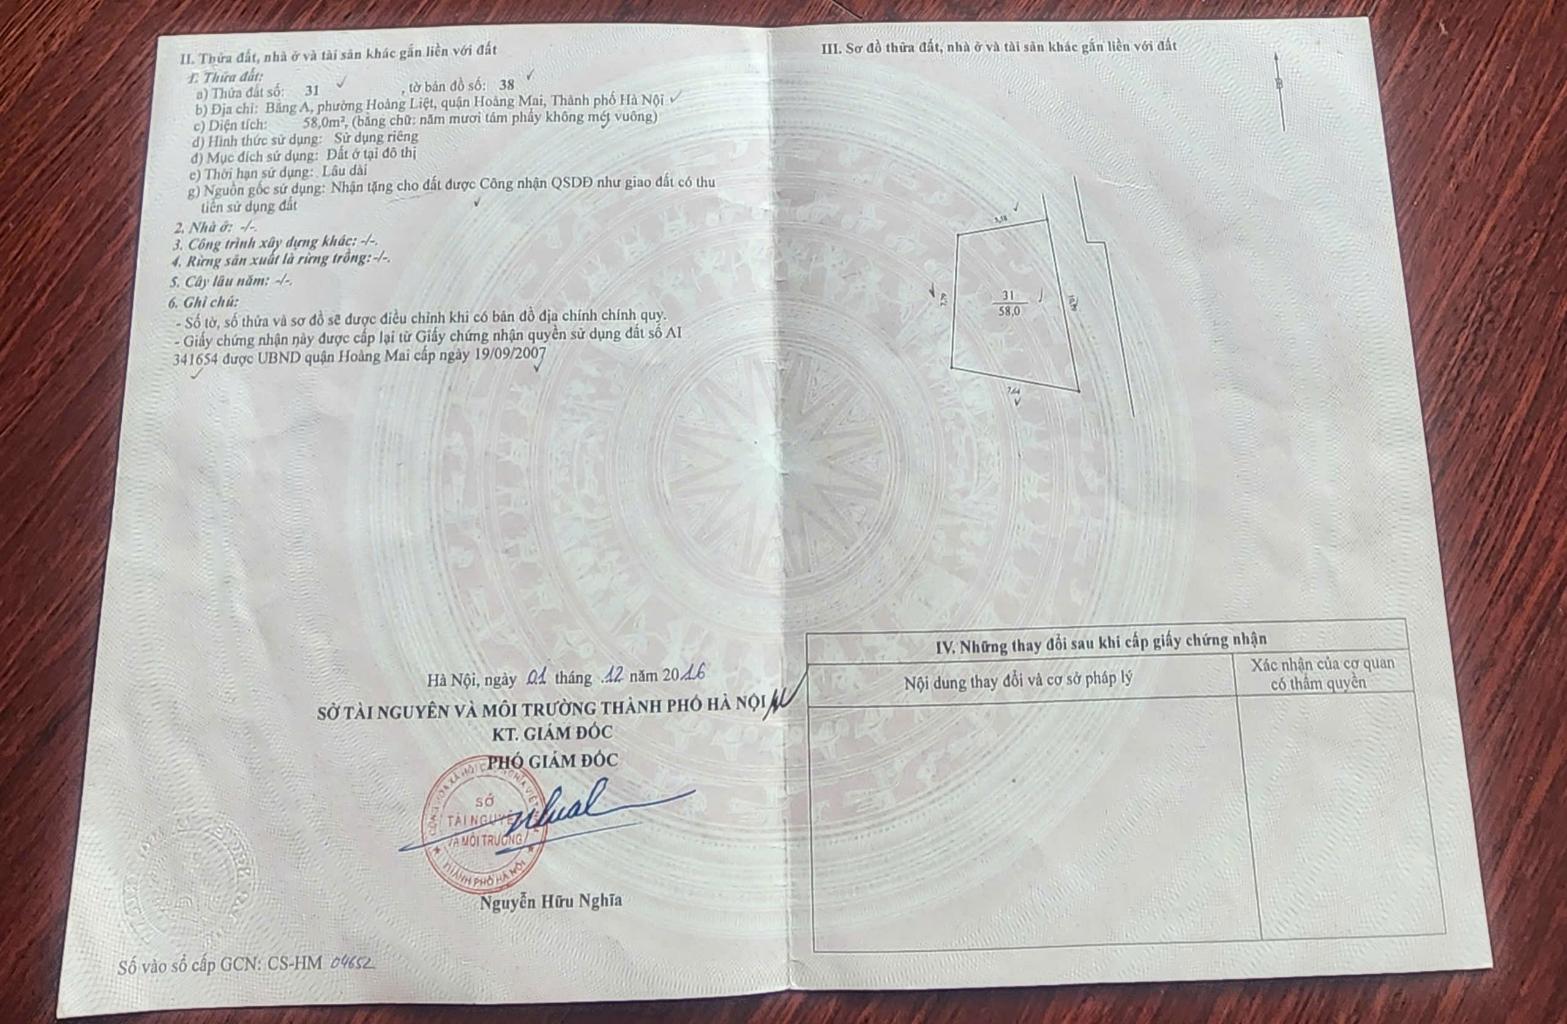 II. Thửa đất, nhà ở và tài sản khác gắn liền với đất
1. Thửa đất:
a) Thửa đất số: 31 , tờ bản đồ số: 38
b) Địa chỉ: Bằng A, phường Hoàng Liệt, quận Hoàng Mai, Thành phố Hà Nội
c) Diện tích: 58,0m², (bằng chữ: năm mươi tám phẩy không mét vuông)
d) Hình thức sử dụng: Sử dụng riêng
đ) Mục đích sử dụng: Đất ở tại đô thị
e) Thời hạn sử dụng: Lâu dài
g) Nguồn gốc sử dụng: Nhận tặng cho đất được Công nhận QSDĐ như giao đất có thu
tiền sử dụng đất
2. Nhà ở: -/-.
3. Công trình xây dựng khác: -/-.
4. Rừng sản xuất là rừng trồng: -/-.
5. Cây lâu năm: -/-.
6. Ghi chú:
- Số tờ, số thửa và sơ đồ sẽ được điều chỉnh khi có bản đồ địa chính chính quy.
- Giấy chứng nhận này được cấp lại từ Giấy chứng nhận quyền sử dụng đất số AI
341654 được UBND quận Hoàng Mai cấp ngày 19/09/2007
Hà Nội, ngày 01 tháng 12 năm 2016
SỞ TÀI NGUYÊN VÀ MÔI TRƯỜNG THÀNH PHỐ HÀ NỘI
KT. GIÁM ĐỐC
PHÓ GIÁM ĐỐC
SỞ
TÀI NGUYÊN
VÀ MÔI TRƯỜNG
THÀNH PHỐ HÀ NỘI
Nguyễn Hữu Nghĩa
Số vào sổ cấp GCN: CS-HM 04652
III. Sơ đồ thửa đất, nhà ở và tài sản khác gắn liền với đất
B
31
58,0
7,64
IV. Những thay đổi sau khi cấp giấy chứng nhận
Nội dung thay đổi và cơ sở pháp lý
Xác nhận của cơ quan
có thẩm quyền